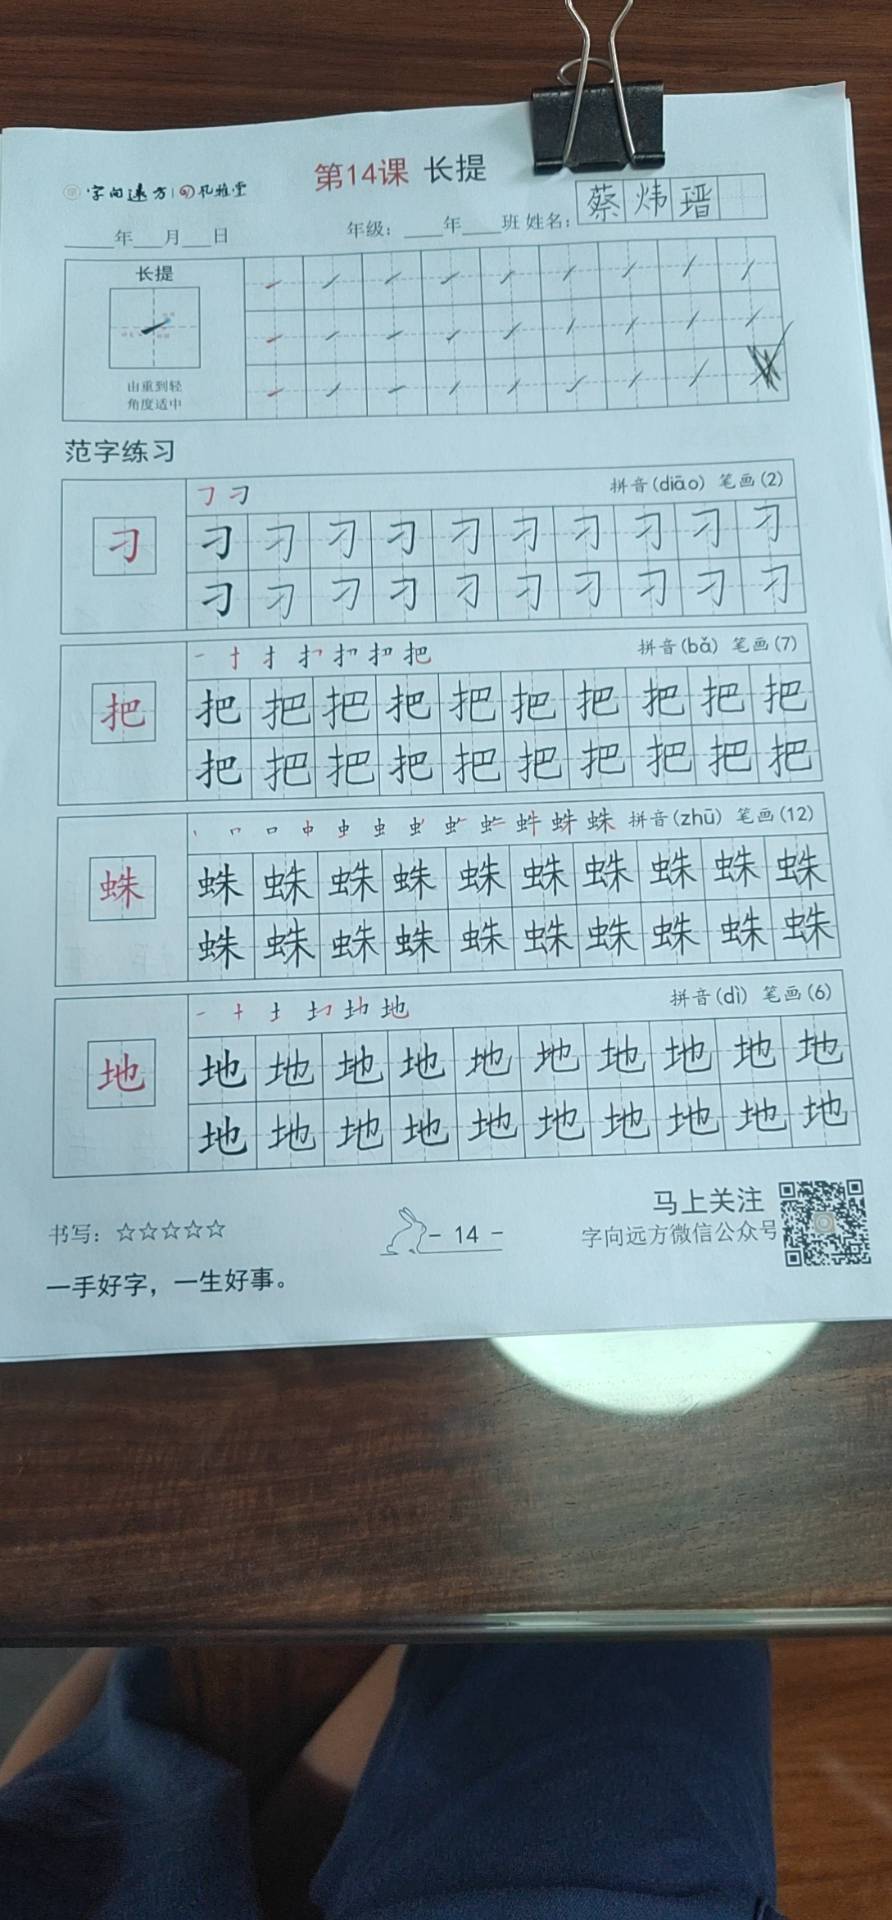 字向远方 | 孔雅堂
第14课 长提
____年___月___日 年级：____年____班 姓名：蔡炜瑨
长提
由重到轻
角度适中
范字练习
拼音(diāo) 笔画(2)
刁 刁 刁 刁 刁 刁 刁 刁 刁 刁 刁
刁 刁 刁 刁 刁 刁 刁 刁 刁 刁
一 扌 把 拼音(bǎ) 笔画(7)
把 把 把 把 把 把 把 把 把 把 把
把 把 把 把 把 把 把 把 把 把
丶 口 口 中 虫 虫 蛛 拼音(zhū) 笔画(12)
蛛 蛛 蛛 蛛 蛛 蛛 蛛 蛛 蛛 蛛 蛛
蛛 蛛 蛛 蛛 蛛 蛛 蛛 蛛 蛛 蛛
一 十 土 地 拼音(dì) 笔画(6)
地 地 地 地 地 地 地 地 地 地 地
地 地 地 地 地 地 地 地 地 地
书写：☆☆☆☆☆
- 14 -
马上关注
字向远方微信公众号
一手好字，一生好事。